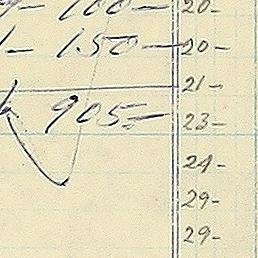 100- 20-
- 150- 20-
21-
905- 23-
24-
29-
29-